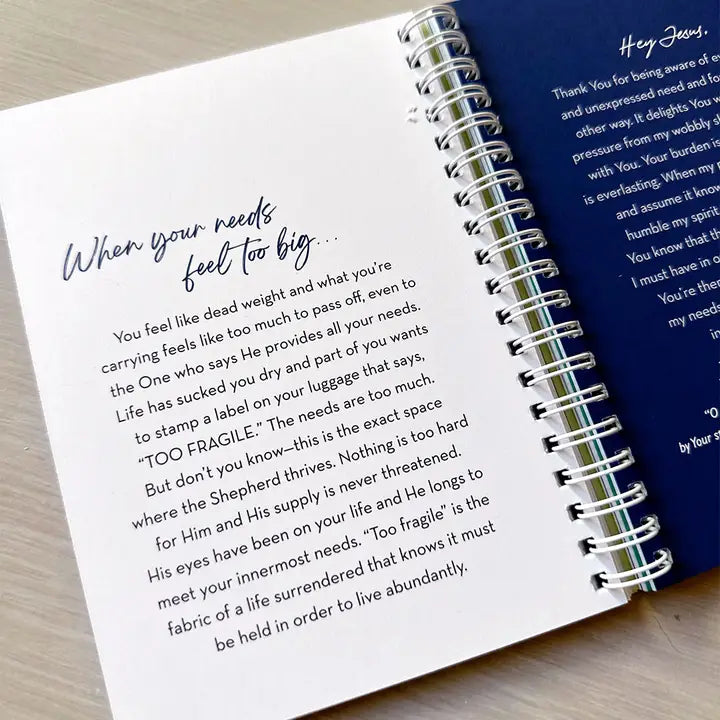 When your needs
feel too big...
You feel like dead weight and what you're
carrying feels like too much to pass off, even to
the One who says He provides all your needs.
Life has sucked you dry and part of you wants
to stamp a label on your luggage that says,
“TOO FRAGILE.” The needs are too much.
But don't you know—this is the exact space
where the Shepherd thrives. Nothing is too hard
for Him and His supply is never threatened.
His eyes have been on your life and He longs to
meet your innermost needs. “Too fragile” is the
fabric of a life surrendered that knows it must
be held in order to live abundantly.
Hey Jesus,
Thank You for being aware of
and unexpressed need and
other way. It delights You
pressure from my wobbly
with You. Your burden is
is everlasting. When my
and assume it
humble my spirit
You know that
I must have in
You're
my needs
“O
by Your